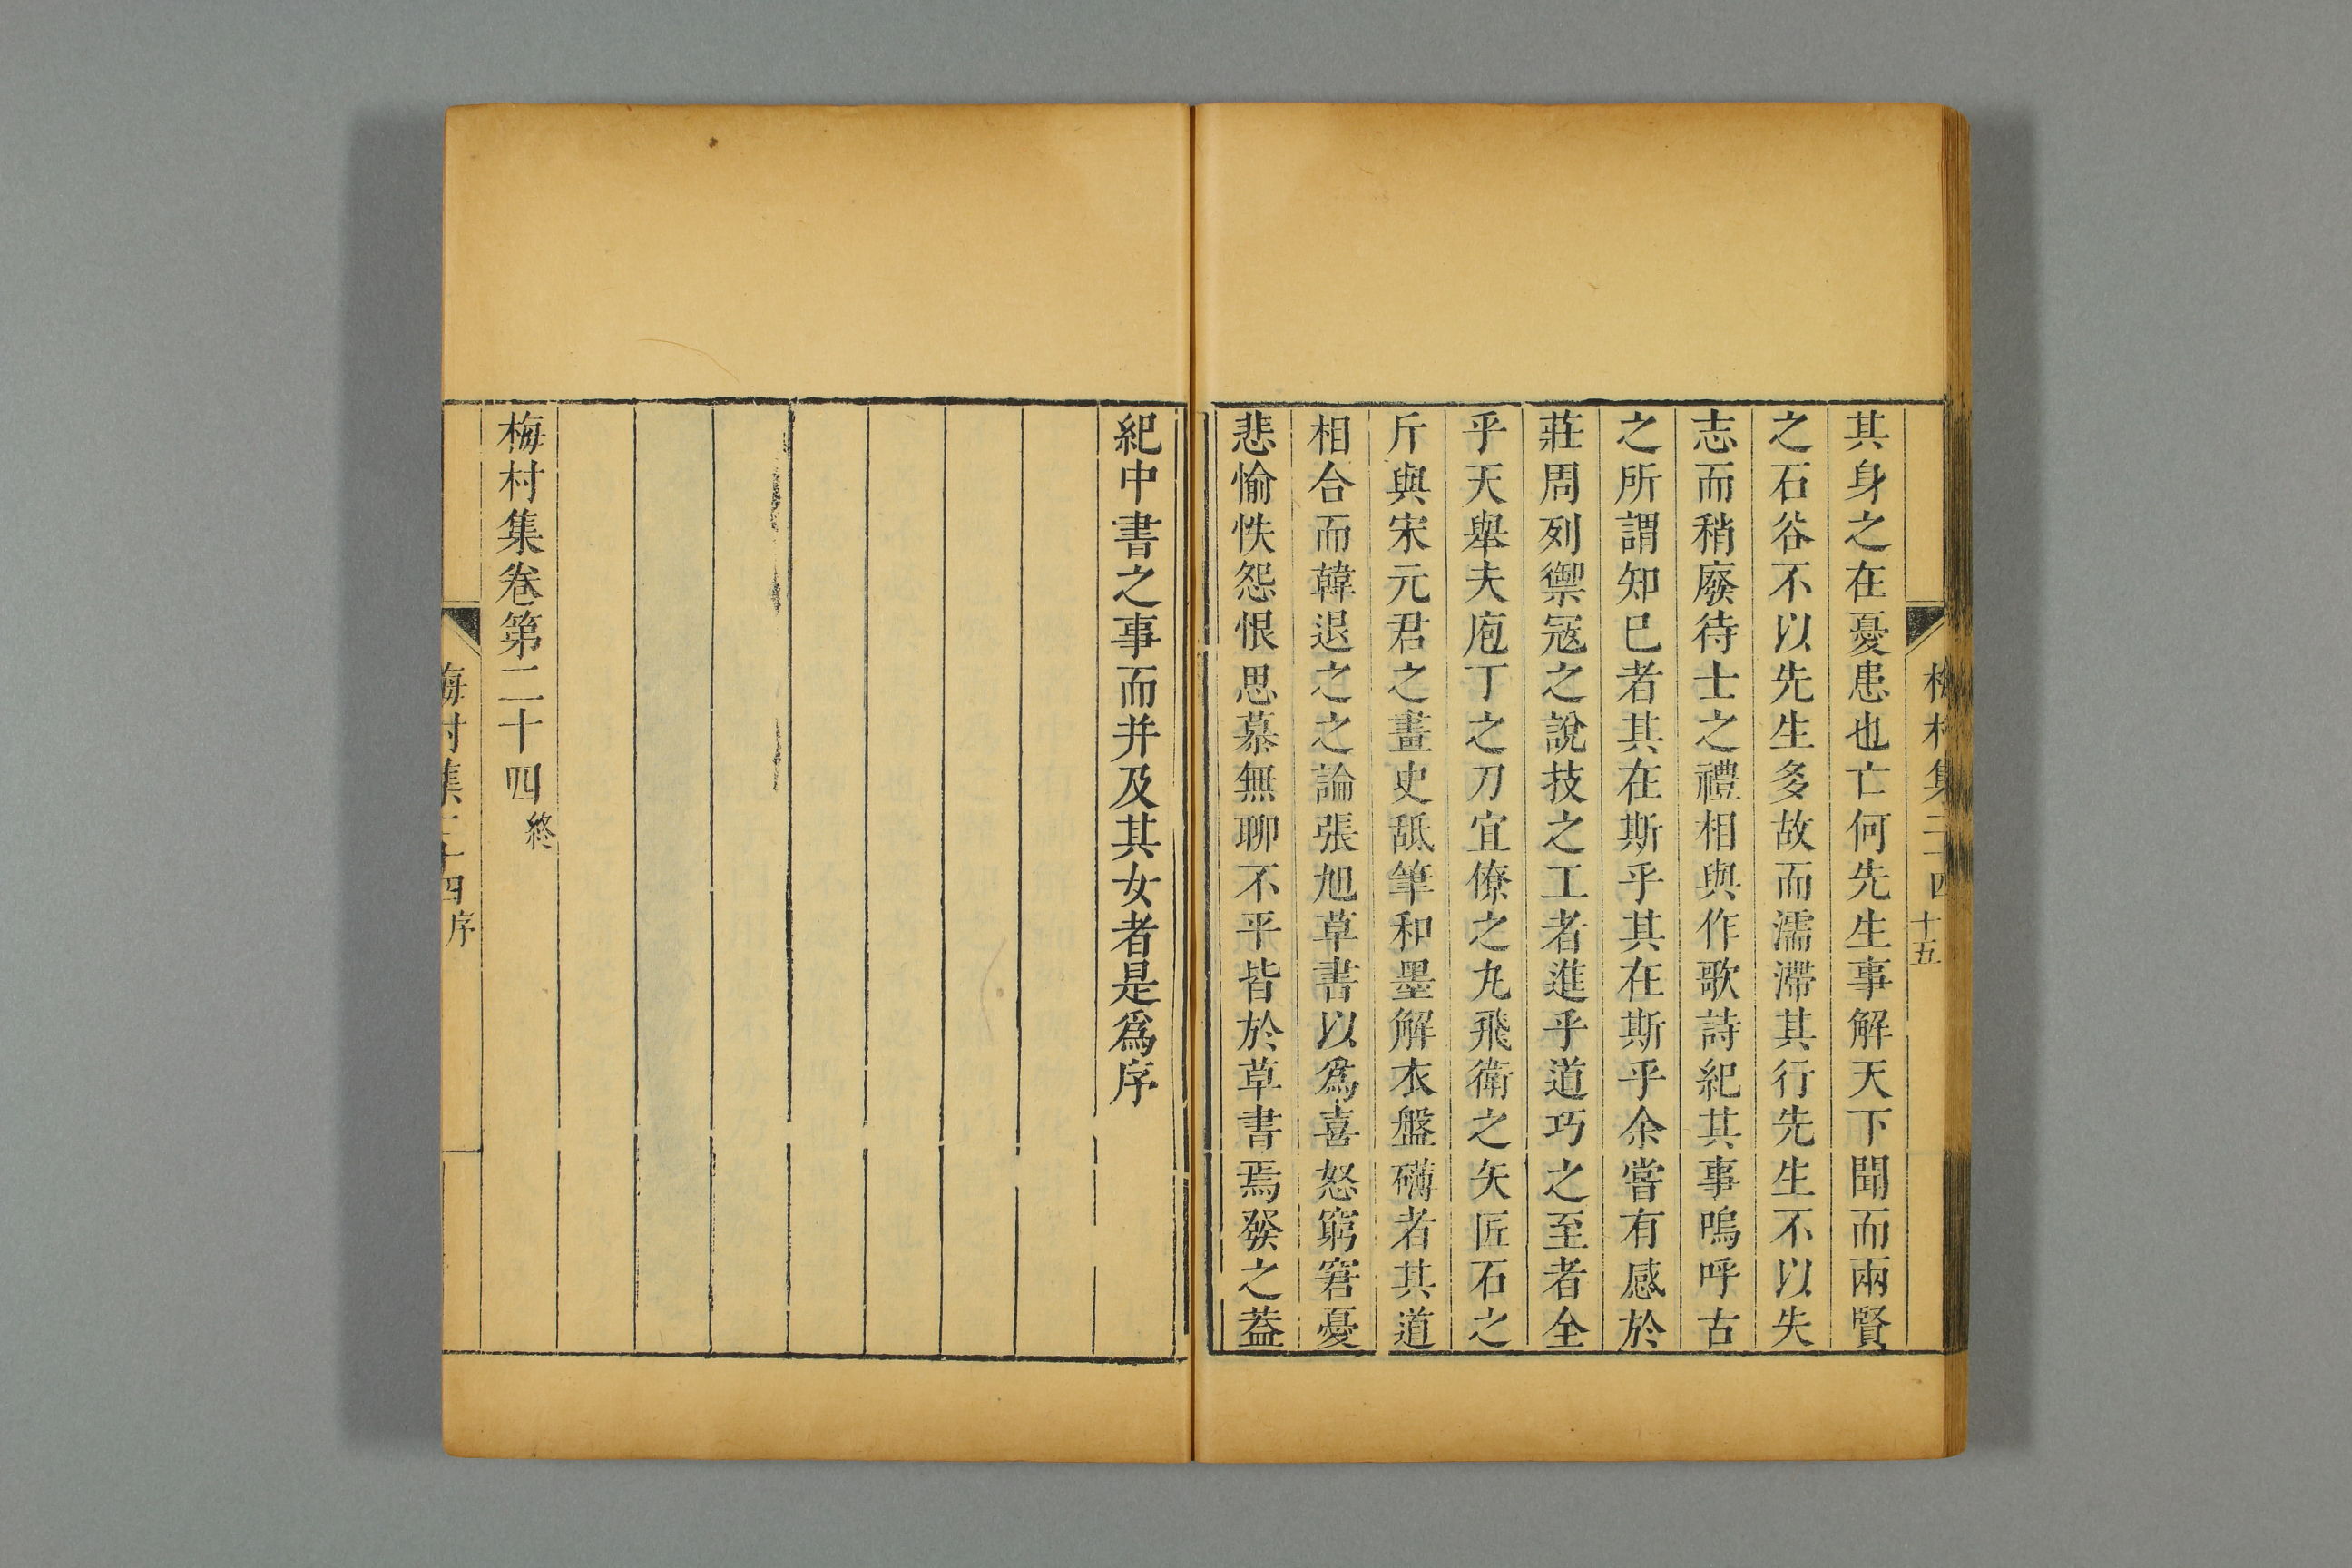 梅村集二十四 十五
其身之在憂患也亡何先生事解天下聞而兩賢
之石谷不以先生多故而濡滯其行先生不以失
志而稍廢待士之禮相與作歌詩紀其事嗚呼古
之所謂知已者其在斯乎其在斯乎余嘗有感於
莊周列禦冦之說技之工者進乎道巧之至者全
乎天舉夫庖丁之刀宜僚之丸飛衛之矢匠石之
斤與宋元君之畫史舐筆和墨解衣盤礴者其道
相合而韓退之之論張旭草書以爲喜怒窮窘憂
悲愉怏怨恨思慕無聊不平皆於草書焉發之葢
紀中書之事而并及其女者是爲序
梅村集卷第二十四終
梅村集二十四序